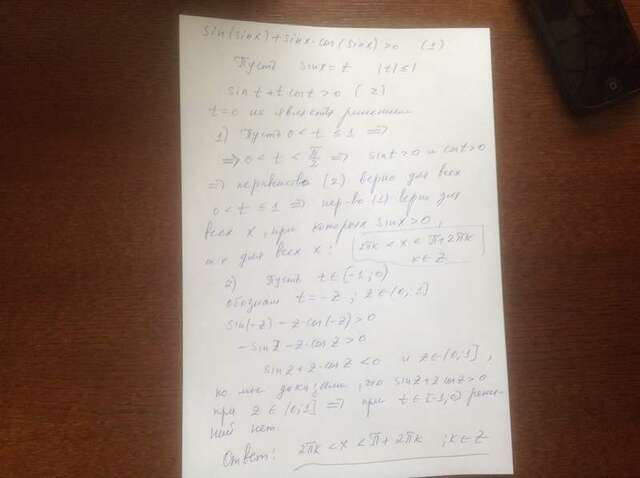 sin(sinx)+sinx·cos(sinx)>0 (1)
Пусть sinx=t |t|≤1
sin t+t cost>0 (2)
t=0 не является решением
1) Пусть 0<t≤1 ⇒
⇒ 0<t<π/2 ⇒ sint>0 и cost>0
⇒ неравенство (2) верно для всех
0<t≤1 ⇒ нер-во (1) верно для
всех x, при которых sinx>0,
т.е для всех x: 2πk<x<π+2πk
k∈Z
2) Пусть t∈[-1;0)
обознач t=-z; z∈(0;1]
sin(-z)-z·cos(-z)>0
-sinz-z·cosz>0
sinz+z·cosz<0 и z∈(0;1],
но мы доказали, что sinz+zcosz>0
при z∈(0;1] ⇒ при t∈[-1,0) реше-
ний нет.
Ответ: 2πk<x<π+2πk ; k∈Z